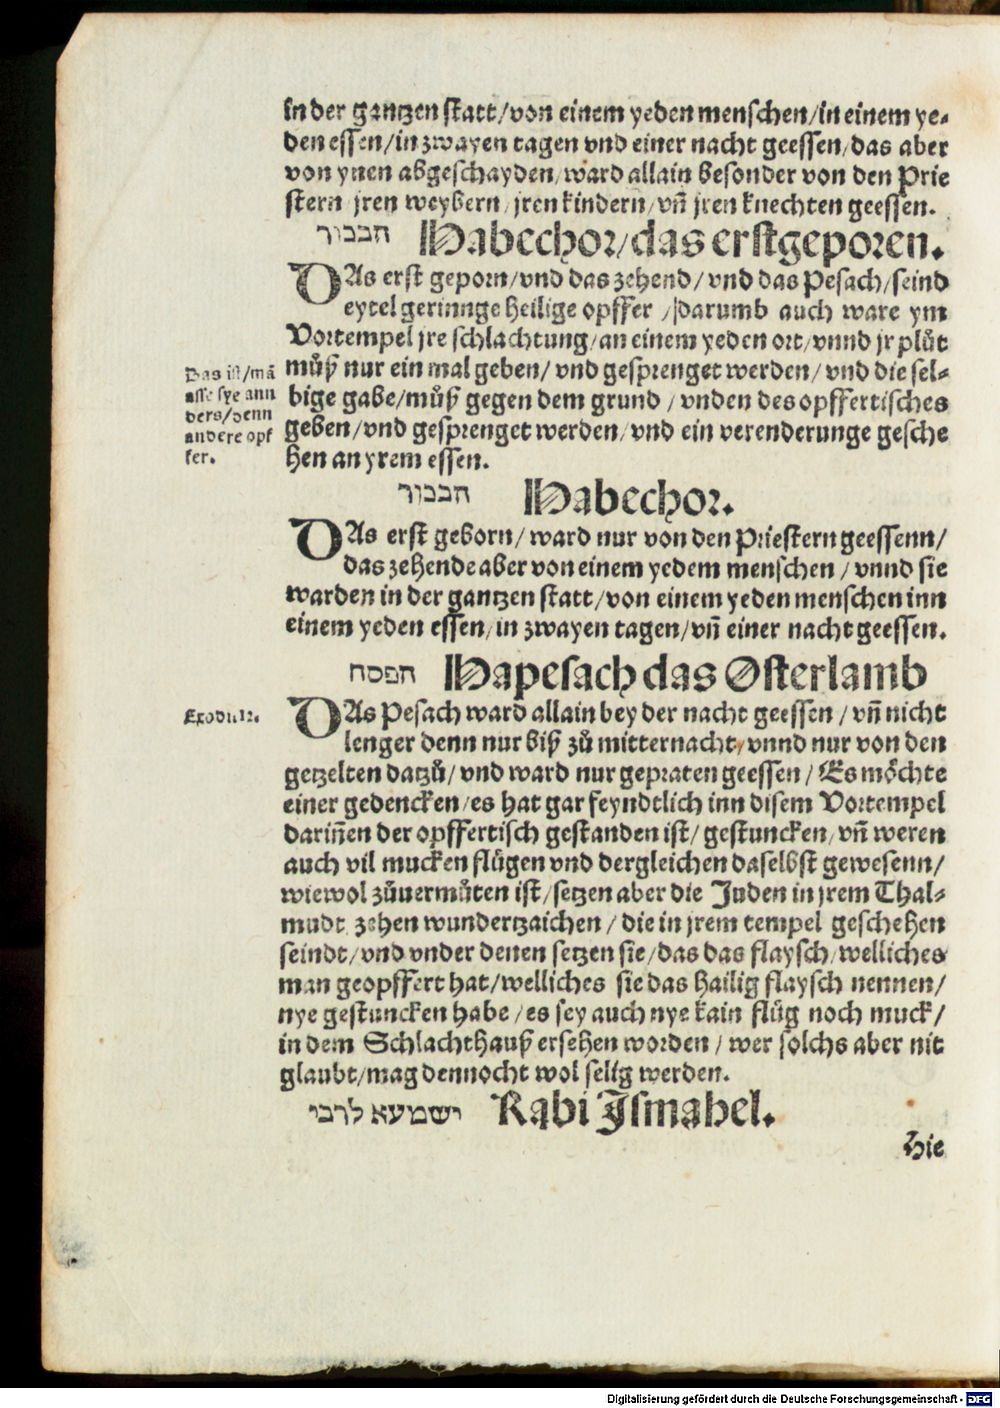 in der gantzen statt/von einem yeden menschen/in einem ye-
den essen/in zwayen tagen vnd einer nacht geessen/das aber
von ynen abgeschayden/ward allain besonder von den Prie
stern jren weybern/jren kindern/vñ jren knechten geessen.
חבכור Habechor/das erstgeporen.
DAs erst geporn/vnd das zehend/vnd das Pesach/seind
eytel gerinnge heilige opffer /darumb auch ware ym
Vortempel jre schlachtung/an einem yeden ort/vnnd jr plůt
můß nur ein mal geben/vnd gesprenget werden/vnd die sel-
bige gabe/můß gegen dem grund/vnden des opffertisches
geben/vnd gesprenget werden/vnd ein verenderunge gesche
hen an yrem essen.
Das ist/mã
asse sye ann
ders/denn
andere opf
fer.
חבכור Habechor.
DAs erst geborn/ward nur von den Priestern geessenn/
das zehende aber von einem yedem menschen/vnnd sie
warden in der gantzen statt/von einem yeden menschen inn
einem yeden essen/in zwayen tagen/vñ einer nacht geessen.
חפסח Hapesach das Osterlamb
Exodi.12.
DAs Pesach ward allain bey der nacht geessen/vñ nicht
lenger denn nur biß zů mitternacht/vnnd nur von den
getzelten datzů/vnd ward nur gepraten geessen/Es möchte
einer gedencken/es hat gar feyndtlich inn disem Vortempel
dariñen der opffertisch gestanden ist/gestuncken/vñ weren
auch vil mucken flügen vnd dergleichen daselbst gewesenn/
wiewol zůuermůten ist/setzen aber die Juden in jrem Thal-
mudt zehen wundertzaichen/die in jrem tempel geschehen
seindt/vnd vnder denen setzen sie/das das flaysch/welliches
man geopffert hat/welliches sie das hailig flaysch nennen/
nye gestuncken habe/es sey auch nye kain flüg noch muck/
in dem Schlachthauß ersehen worden/wer solchs aber nit
glaubt/mag dennocht wol selig werden.
ישמעא לרבי Rabi Ismahel.
Hie
Digitalisierung gefördert durch die Deutsche Forschungsgemeinschaft - DFG